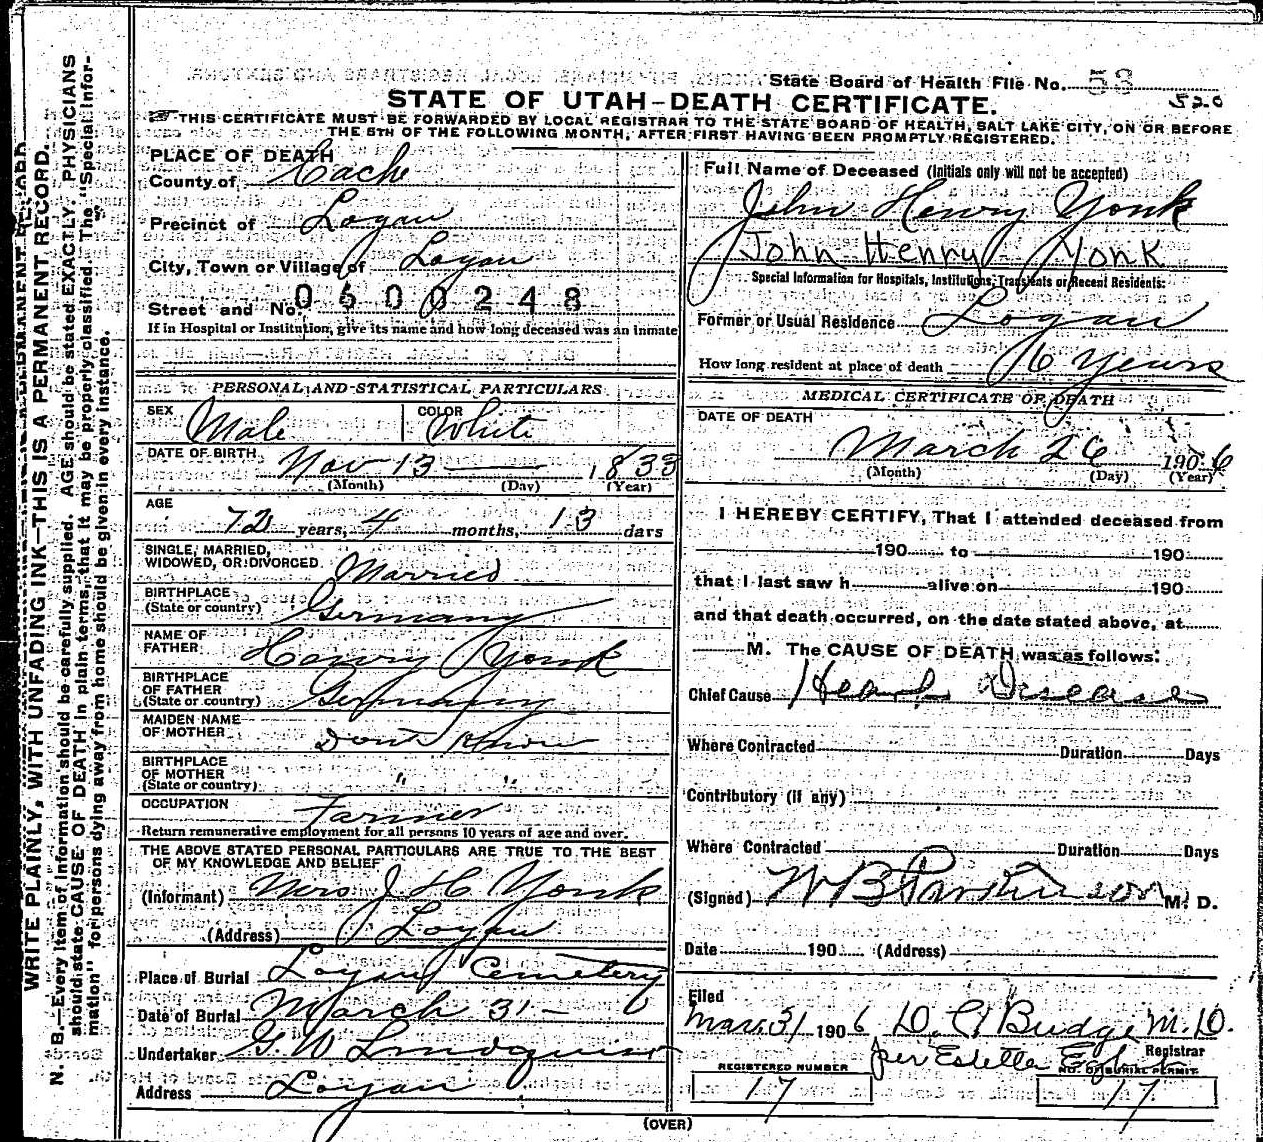 State Board of Health File No. 53
520
STATE OF UTAH-DEATH CERTIFICATE.
THIS CERTIFICATE MUST BE FORWARDED BY LOCAL REGISTRAR TO THE STATE BOARD OF HEALTH, SALT LAKE CITY, ON OR BEFORE
THE 5TH OF THE FOLLOWING MONTH, AFTER FIRST HAVING BEEN PROMPTLY REGISTERED.
WRITE PLAINLY, WITH UNFADING INK—THIS IS A PERMANENT RECORD.
N. B.—Every item of information should be carefully supplied. AGE should be stated EXACTLY. PHYSICIANS
should state CAUSE OF DEATH in plain terms, that it may be properly classified. The "Special Infor-
mation" for persons dying away from home should be given in every instance.
PLACE OF DEATH
County of Cache
Precinct of Logan
City, Town or Village of Logan
Street and No. 0600248
If in Hospital or Institution, give its name and how long deceased was an inmate
PERSONAL AND STATISTICAL PARTICULARS
SEX Male COLOR White
DATE OF BIRTH Nov 13 1833
(Month) (Day) (Year)
AGE
72 years, 4 months, 13 days
SINGLE, MARRIED,
WIDOWED, OR DIVORCED Married
BIRTHPLACE
(State or country) Germany
NAME OF
FATHER Henry Yonk
BIRTHPLACE
OF FATHER
(State or country) Germany
MAIDEN NAME
OF MOTHER Dont Know
BIRTHPLACE
OF MOTHER
(State or country) " "
OCCUPATION Farmer
Return remunerative employment for all persons 10 years of age and over.
THE ABOVE STATED PERSONAL PARTICULARS ARE TRUE TO THE BEST
OF MY KNOWLEDGE AND BELIEF
(Informant) Mrs J H Yonk
(Address) Logan
Place of Burial Logan Cemetery
Date of Burial March 31 -
Undertaker G. W Lindquist
Address Logan
Full Name of Deceased (Initials only will not be accepted)
John Henry Yonk
John Henry Yonk
Special Information for Hospitals, Institutions, Transients or Recent Residents:
Former or Usual Residence Logan
How long resident at place of death 16 Years
MEDICAL CERTIFICATE OF DEATH
DATE OF DEATH
March 26 1906
(Month) (Day) (Year)
I HEREBY CERTIFY, That I attended deceased from
190 to 190
that I last saw h alive on 190
and that death occurred, on the date stated above, at
M. The CAUSE OF DEATH was as follows:
Chief Cause Heart Disease
Where Contracted Duration Days
Contributory (if any)
Where Contracted Duration Days
(Signed) W B Parkinson M. D.
Date 190 (Address)
Filed
Mar. 31 1906 D. C. Budge M. D.
Registrar
per Estella
REGISTERED NUMBER NO. OF BURIAL PERMIT
17 17
(OVER)